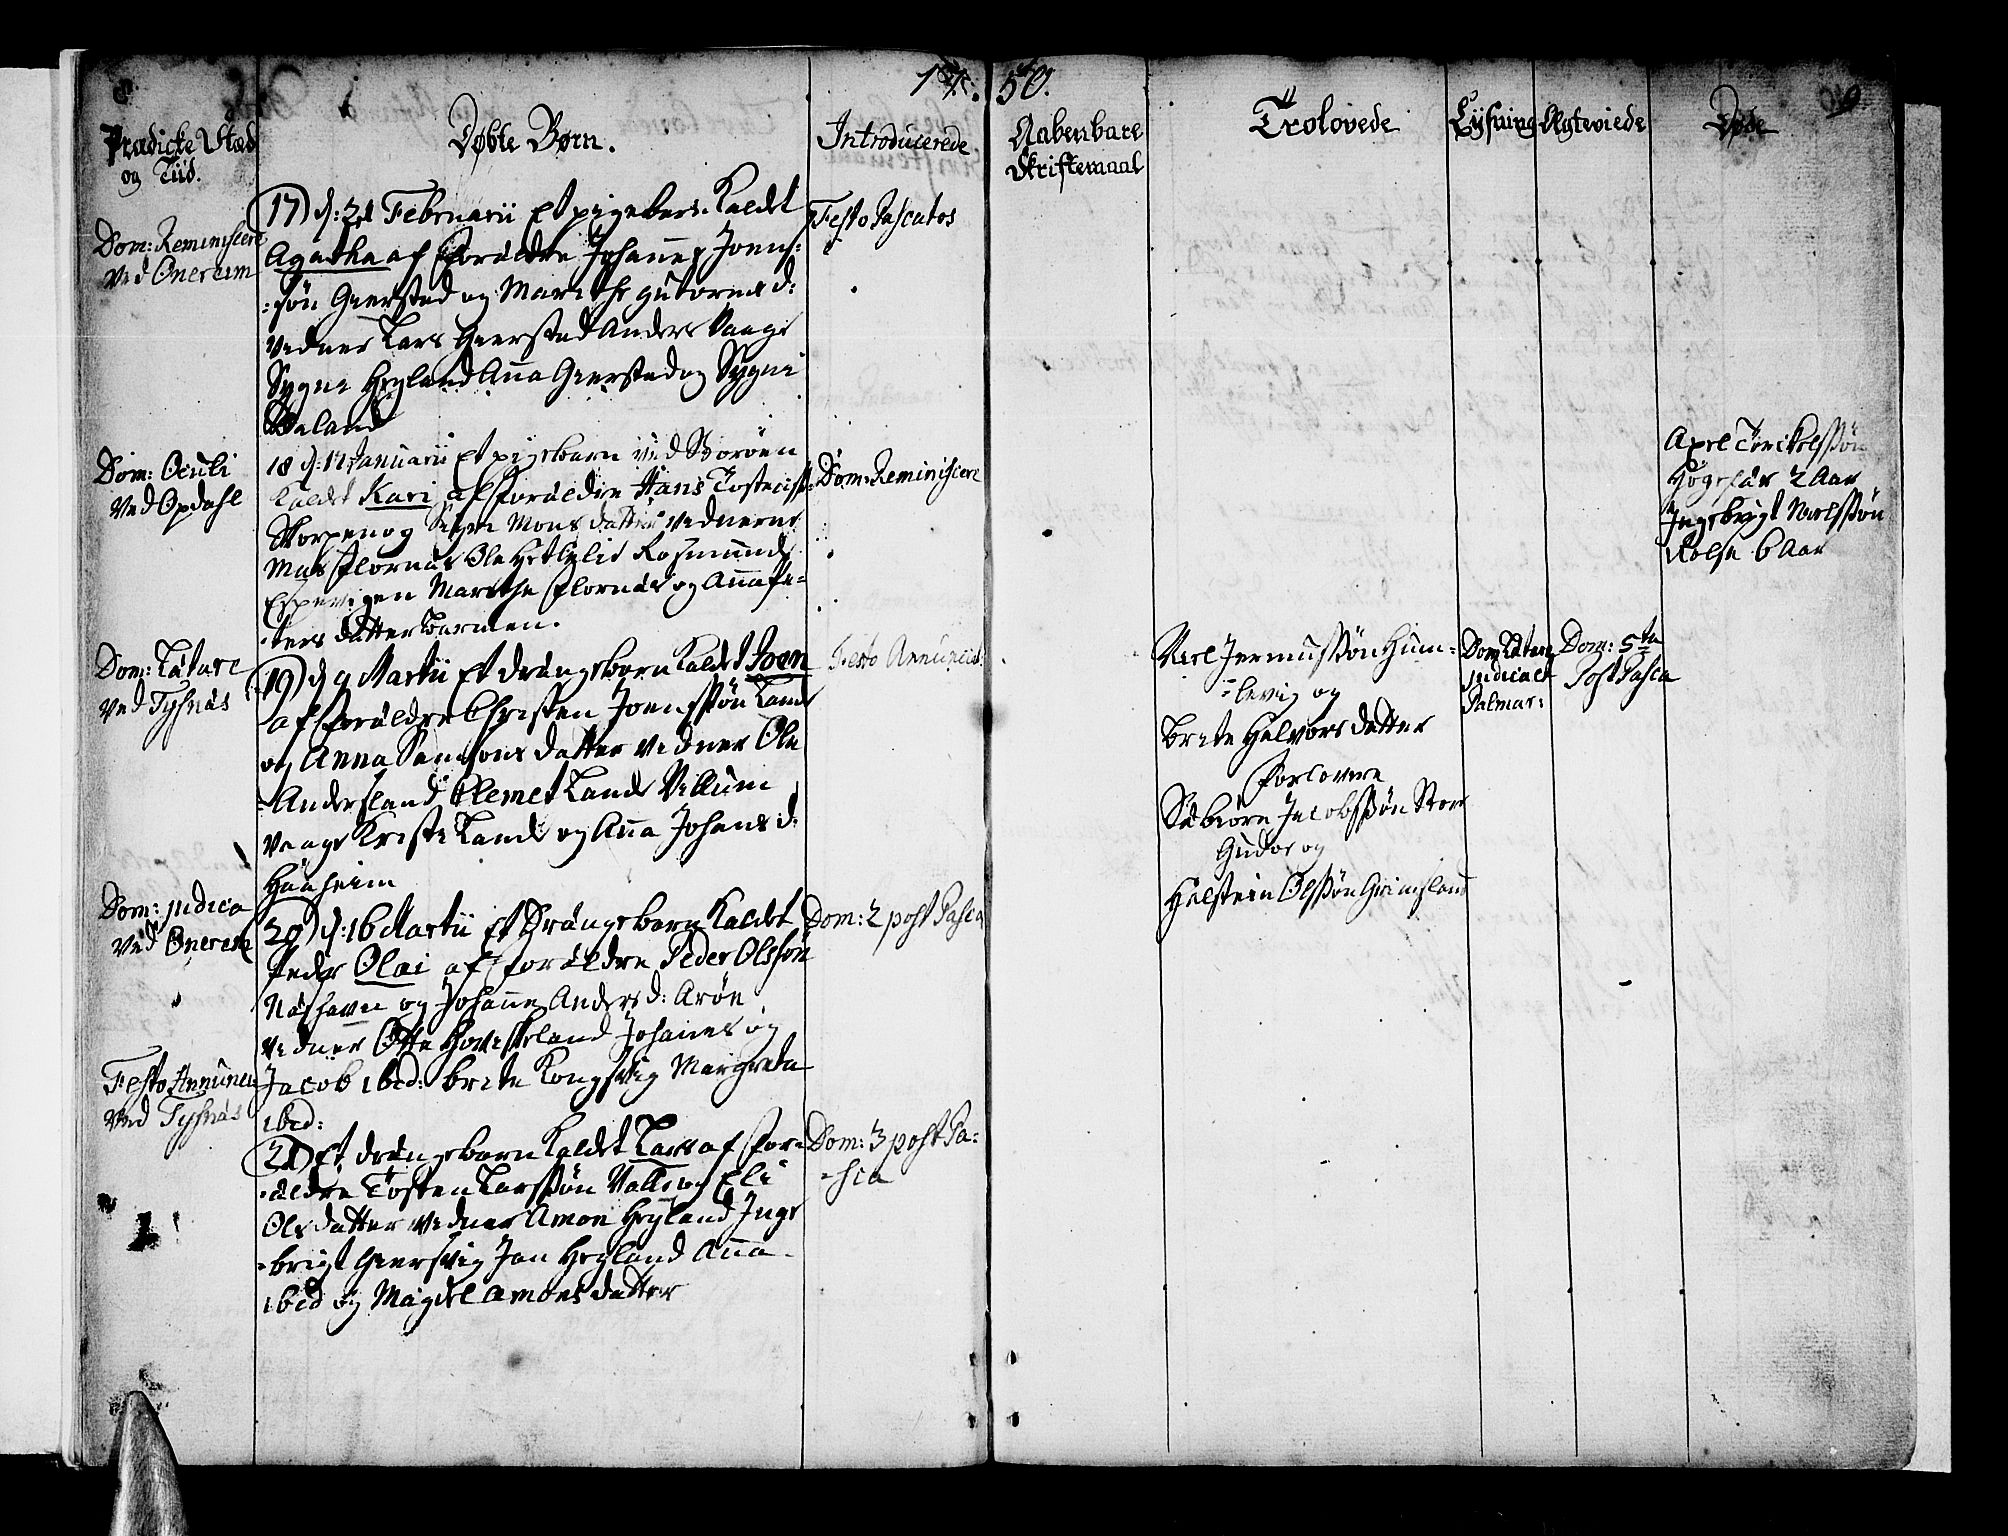 8
17
50.
9
Prædicke Stæd
og Tiid.
Døbte Børn.
Introducerede
Aabenbare
Skriftemaal
Trolovede
Lysning
Ægteviede
Døde
Dom: Reminiscere
Ved Onereim
17) d: 22 Februarii Et pigebarn Kaldet
Agatha af Forældre Johannes Joens:
:søn Gierstad og Marithe gutorms d:
Vidner Lars Gierstad Anders Vaage
Sygni Hegland Anna Gierstad og Sygni
Waland
Festo Pascatos
Dom: Oculi
Ved Opdahl
18 d: 17 Januarii Et pigebarn ved Skorøen
Kaldet Kari af Forældre Hans Tostens:
Skorpen og Mons datter Vidnerne
Mas Flornæs Ole Hetlelid Rasmund
Espevigen Marithe Flornæs og Anna Pe=
:ters datter Barmen.
Dom: Reminiscere
Axel Torckelssøn
Høgefær 2 Aar
Ingebrigt Narlssøn
Rolse 6 Aar
Dom: Lætare
Ved Tysnæs
19) d 9 Martii Et drængebarn Kaldet Joen
af Forældre Christen Joenssøn Lande
og Anna Samsons datter Vidner Ole
Andersland Clemet Lande Villum
Vaage Kristi Lande og Anna Johans d:
Haaheim
Festo Annunciat:
Narl Jermunssøn Hum=
:levig og
brite Halvors datter
Forlovere
Sæbiørn Jacobssøn Store
Gudøe og
Halstein Olssøn Grimsland
Dom Lætare
Judica et
Palmar:
Dom: 5ta
Post Pasca
Dom: Judica
Ved Onereim
20) d: 16 Martii Et Drængebarn Kaldet
Peder Olai af Forældre Peder Olssøn
Næshavn og Johanne Anders d: Arøe
Vidner Otte Hoveskeland Johannes og
Jacob ibid: brite Kongsvig Margreta
ibid:
Dom: 2 post Pasca
Festo Annuncia
Ved Tysnæs
21) Et drængebarn Kaldet Lars af For=
:ældre Tosten Larssøn Valle og Eli
Ols datter Vidner Amon Hegland Inge
:brigt Giersvig Jan Hegland Anna
ibid og Magdel Amons datter
Dom: 3 post Pa=
=sca